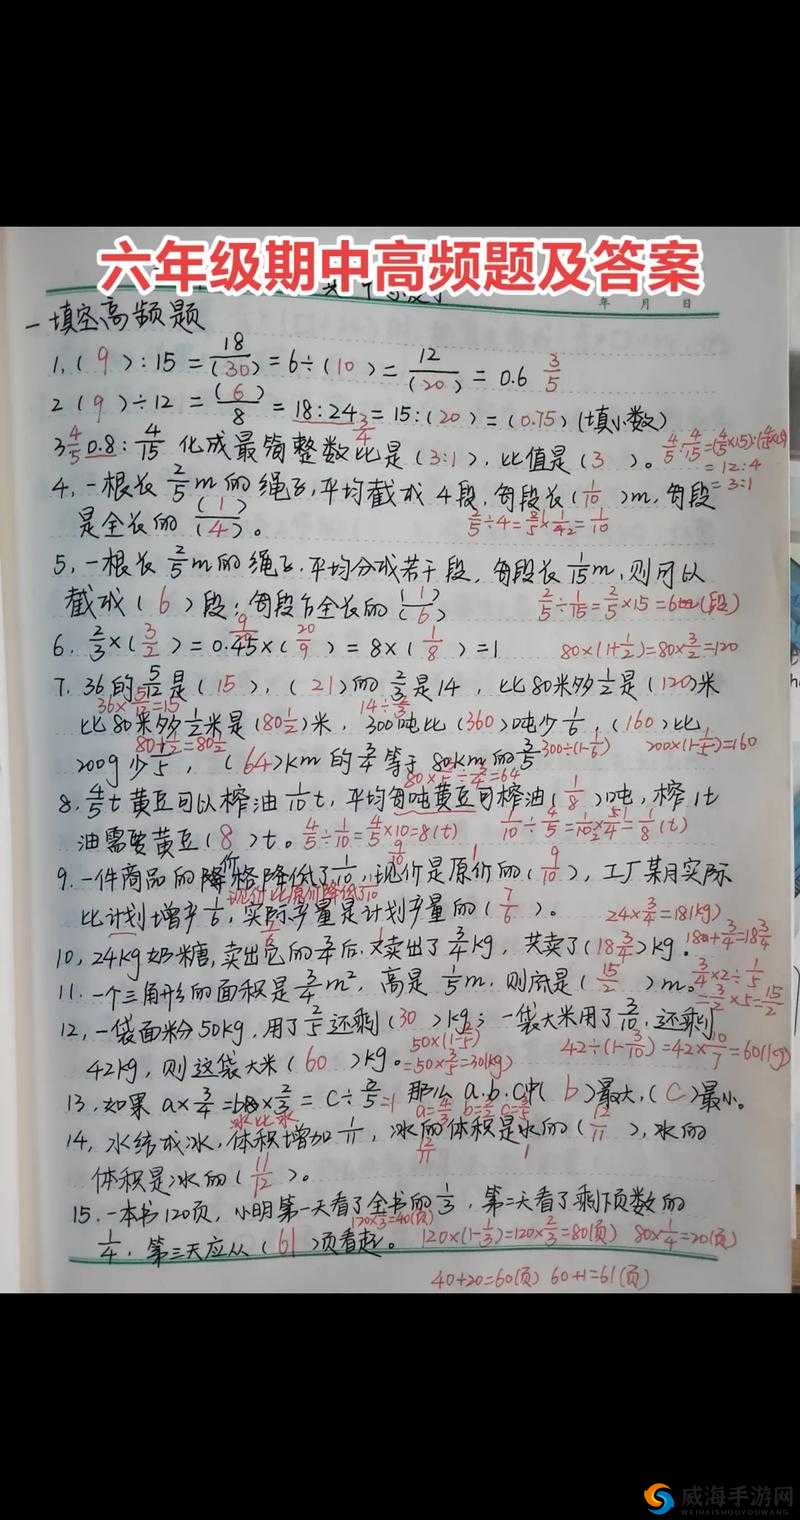 六年级期中高频题及答案
年 月 日
一填空高频题
1,( 9 ):15 = 18/(30) = 6÷(10) = 12/(20) = 0.6 3/5
2 ( 9 )÷12 = (6)/8 = 18:24 = 15:(20) = (0.75)(填小数)
3/4
3 0.8:4/15 化成最简整数比是(3:1),比值是(3 )。
4/5 4/5:4/15=(4/5×15):(4/15×15)
=12:4
=3:1
4,一根长2/5m的绳子,平均截成4段,每段长(1/10)m,每段
是全长的(1)/(4)。 2/5÷4=2/5×1/4=1/10
5,一根长2/5m的绳子,平均分成若干段,每段长1/15m,则可以
截成( 6 )段;每段占全长的(1)/(6) 2/5÷1/15=2/5×15=6(段)
6. 2/3×(3/2)=0.45×(20/9)=8×(1/8)=1 80×(1+1/2)=80×3/2=120
9/20
7. 36的5/12是(15),(21)的2/3是14,比80米多1/2是(120)米
36×5/12=15 14÷2/3
比80米多1/2米是(80 1/2)米,300吨比(360)吨少1/6,(160)比
80+1/2=80 1/2 300÷(1-1/6) 200×(1-1/5)=160
200g少1/5,(64)km的3/4等于80km的3/5
80×3/5÷3/4=64
8. 4/5t黄豆可以榨油1/10t,平均每吨黄豆可榨油(1/8)吨,榨1t
油需要黄豆(8)t。4/5÷1/10=4/5×10=8(t) 1/10÷4/5=1/10×5/4=1/8(t)
9/10 1
9.一件商品的价格降低了1/10,现价是原价的(9/10),工厂某月实际
现价比原价降低了1/10
比计划增产1/6,实际产量是计划产量的(7/6)。 24×3/4=18(kg)
7/6 1
10,24kg奶糖,卖出它的3/4后,又卖出了3/4kg,共卖了(18 3/4)kg。 18+3/4=18 3/4
11.一个三角形的面积是3/4m²,高是1/5m,则底是(15/2)m。 3/4×2÷1/5
=3/2×5=15/2
12,一袋面粉50kg,用了2/5还剩(30)kg;一袋大米用了3/10,还剩
50×(1-2/5)
42kg,则这袋大米(60)kg。=50×3/5=30(kg) 42÷(1-3/10)=42×10/7=60(kg)
13.如果a×3/4=b×2/3=c÷3/5=1 那么a.b.c中(b)最大,(c)最小。
a=4/3 b=3/2 c=3/5
冰比水
14,水结成冰,体积增加1/11,冰的体积是水的(12/11),水的
12/11 1
体积是冰的(11/12)。
15.一本书120页,小明第一天看了全书的1/3,第二天看了剩下页数的
120×1/3=40(页)
1/4,第三天应从(61)页看起。 120×(1-1/3)=120×2/3=80(页) 80×1/4=20(页)
40+20=60(页) 60+1=61(页)
威海手游网
WEIHAISHOUYOUWANG